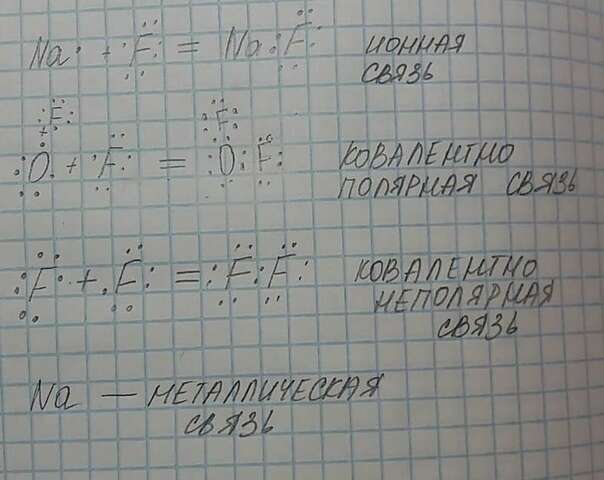 Na· + ·F: = Na:F: ИОННАЯ
СВЯЗЬ
:F:
+
:O· + ·F: = :O:F: КОВАЛЕНТНО
:F:
ПОЛЯРНАЯ СВЯЗЬ
:F· + ·F: = :F:F: КОВАЛЕНТНО
НЕПОЛЯРНАЯ
СВЯЗЬ
Na — МЕТАЛЛИЧЕСКАЯ
СВЯЗЬ